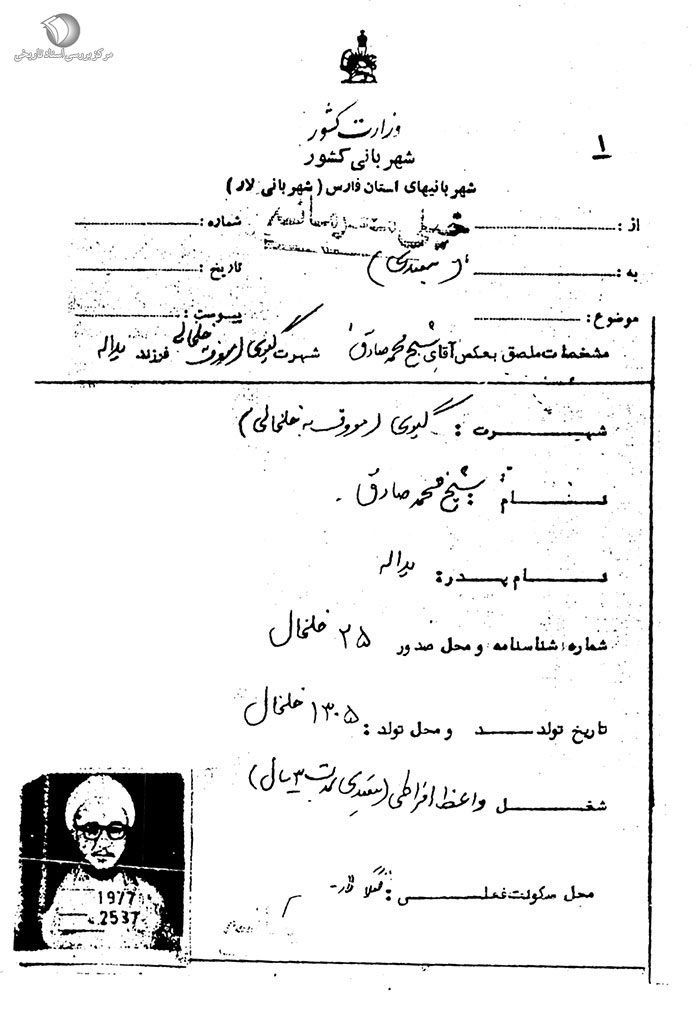 مرکز بررسی اسناد تاریخی
وزارت کشور
شهربانی کشور
۱
شهربانیهای استان فارس (شهربانی لار)
از: خیلی محرمانه شماره:
به: (تبعیدی) تاریخ:
موضوع: پیوست:
مشخصات ملصق بعکس آقای شیخ محمد صادق شهرت گیوی (معروف خلخالی) فرزند یداله
شهرت: گیوی (معروف به خلخالی)
نام: شیخ محمد صادق
نام پدر: یداله
شماره شناسنامه و محل صدور ۲۵ خلخال
تاریخ تولد و محل تولد: ۱۳۰۵ خلخال
شغل واعظ افراطی (تبعیدی بمدت ۳ سال)
محل سکونت فعلی:
1977
2537